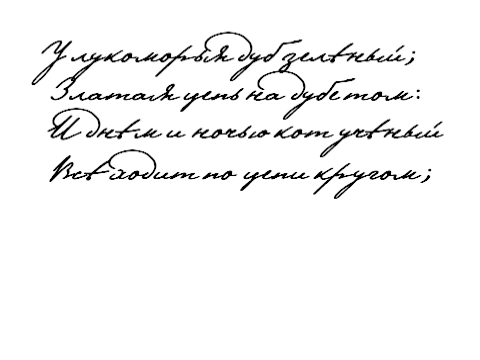 У лукоморья дуб зелѣный;
Златая цепь на дубе том:
И днѣм и ночью кот учѣный
Всѣ ходит по цепи кругом;